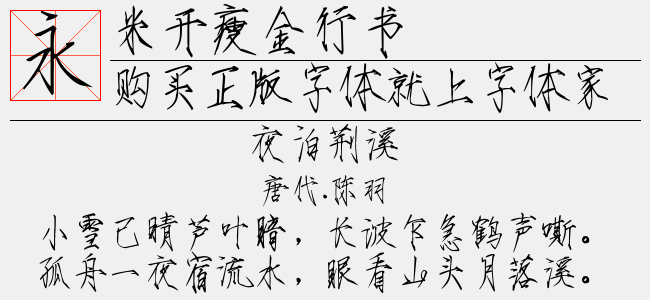 永
米开瘦金行书
购买正版字体就上字体家
夜泊荆溪
唐代.陈羽
小雪已晴芦叶暗，长波乍急鹤声嘶。
孤舟一夜宿流水，眼看山头月落溪。